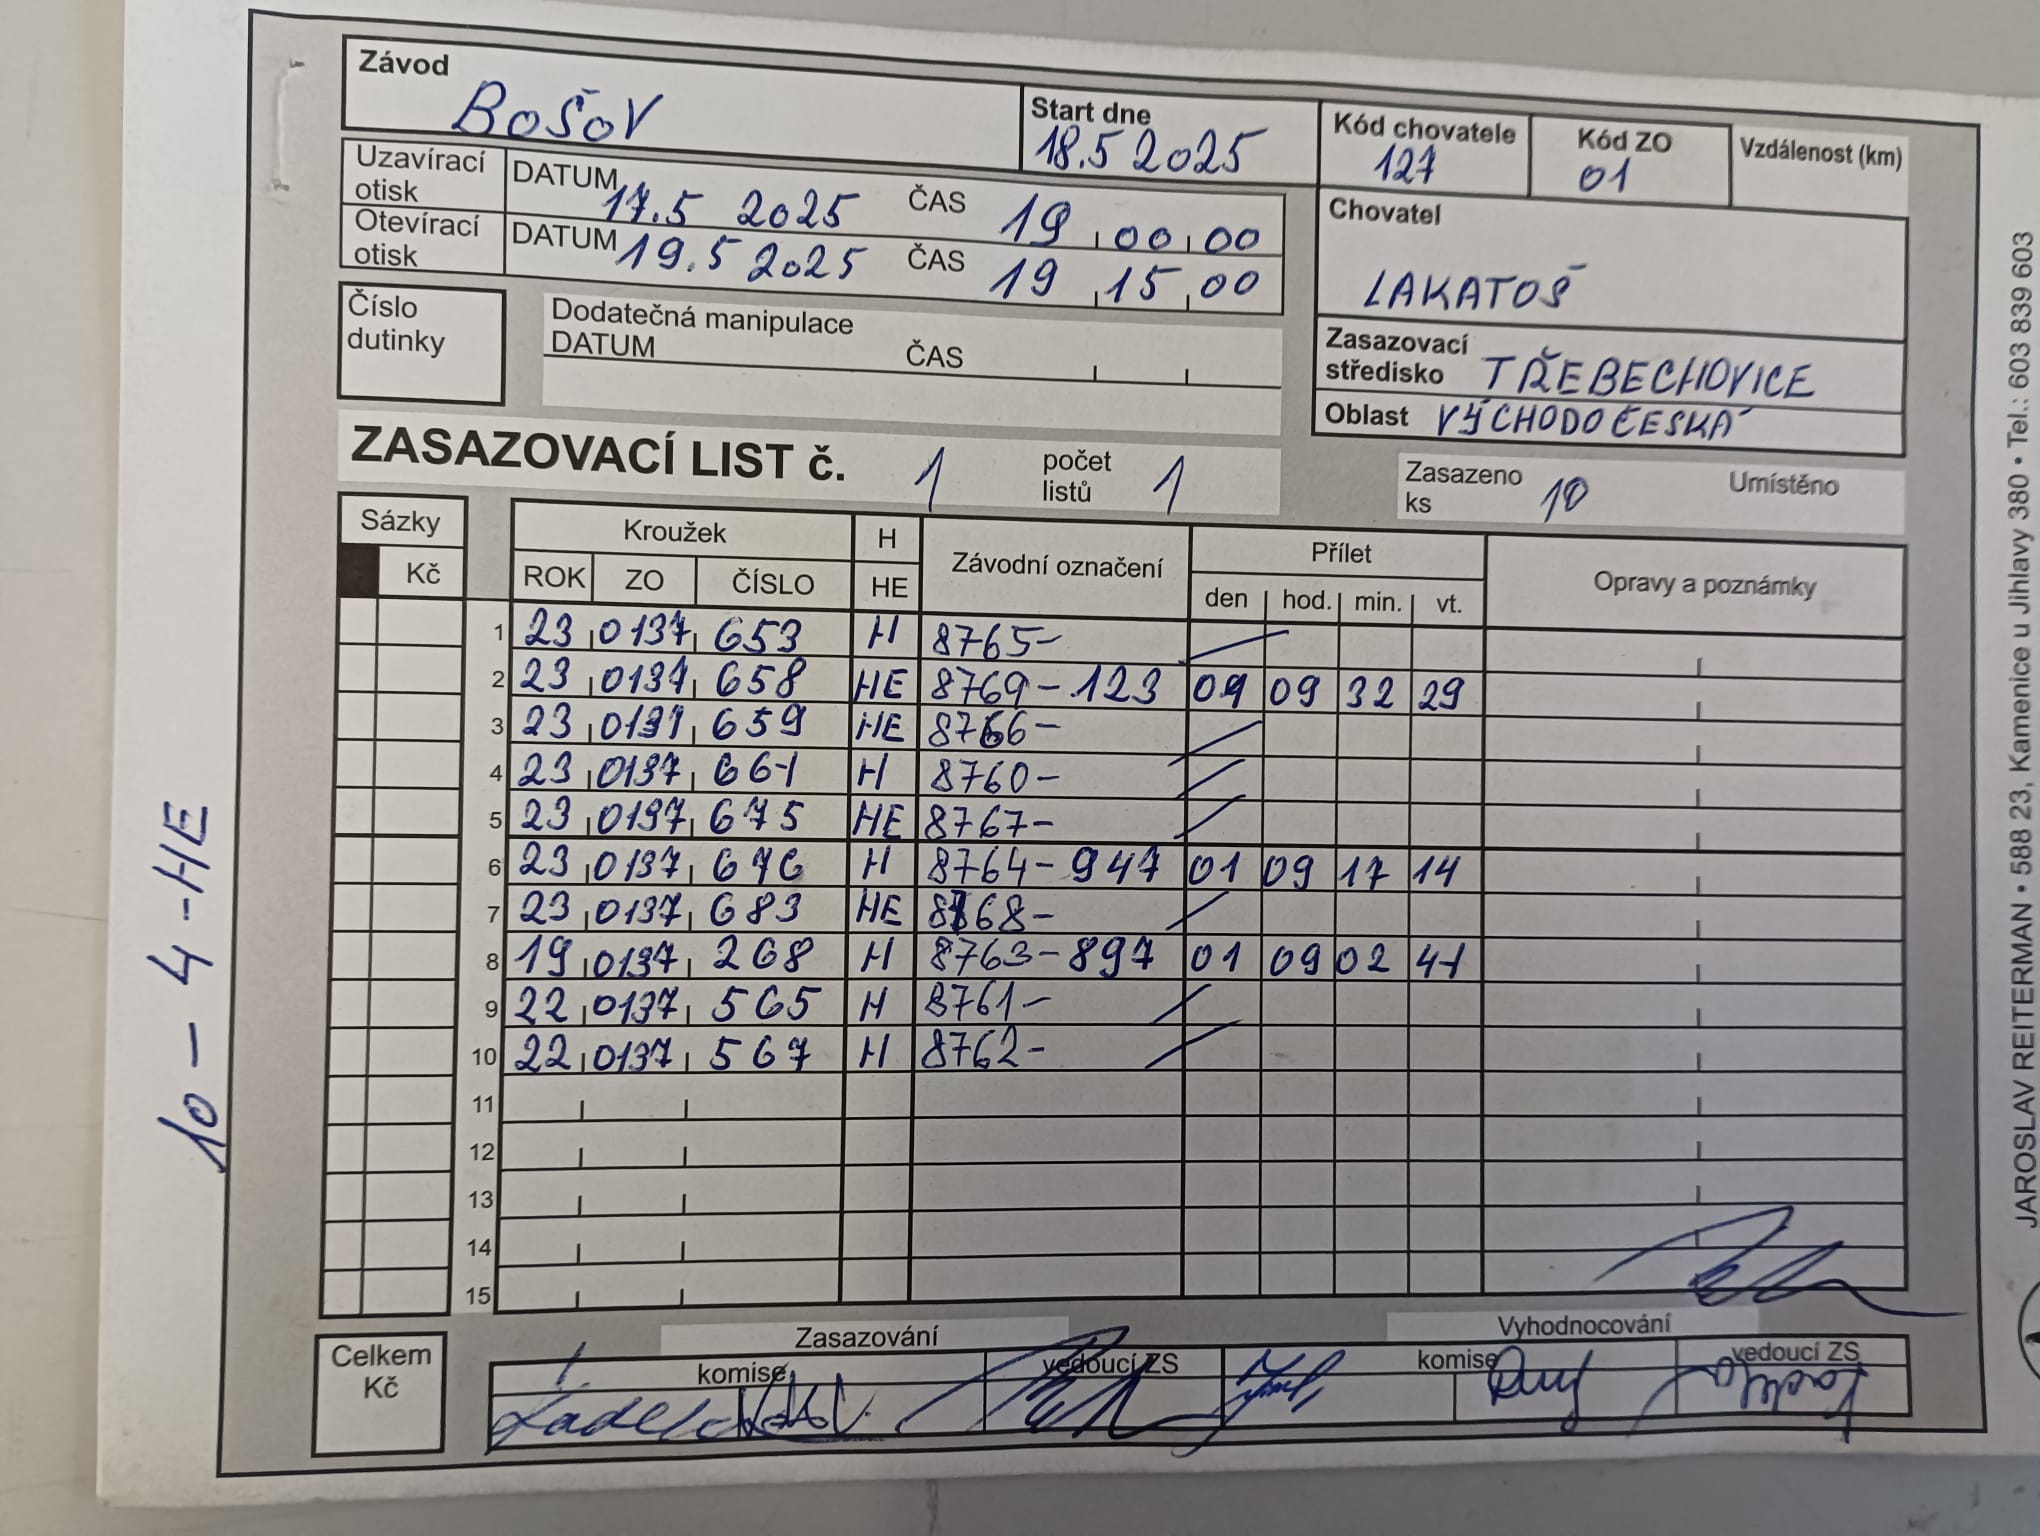 Závod
BOŠOV
Start dne
18.5 2025
Kód chovatele
127
Kód ZO
01
Vzdálenost (km)
Uzavírací otisk DATUM 17.5 2025 ČAS 19 00 00
Otevírací otisk DATUM 19.5 2025 ČAS 19 15 00
Chovatel
LAKATOŠ
Číslo dutinky
Dodatečná manipulace
DATUM ČAS
Zasazovací středisko TŘEBECHOVICE
Oblast VÝCHODOČESKÁ
ZASAZOVACÍ LIST č. 1 počet listů 1
Zasazeno ks 10 Umístěno
Sázky Kroužek H Závodní označení Přílet Opravy a poznámky
Kč ROK ZO ČÍSLO HE den hod. min. vt.
1 23 0137 653 H 8765-
2 23 0137 658 HE 8769-123 09 32 29
3 23 0137 659 HE 8766-
4 23 0137 661 H 8760-
5 23 0137 675 HE 8767-
6 23 0137 676 H 8764-947 01 09 17 14
7 23 0137 683 HE 8768-
8 19 0137 268 H 8763-897 01 09 02 41
9 22 0137 565 H 8761-
10 22 0137 567 H 8762-
11
12
13
14
15
Celkem Kč
Zasazování
Vyhodnocování
komise vedoucí ZS komise vedoucí ZS
10 - 4 - HE
JAROSLAV REITERMAN • 588 23, Kamenice u Jihlavy 380 • Tel.: 603 839 603